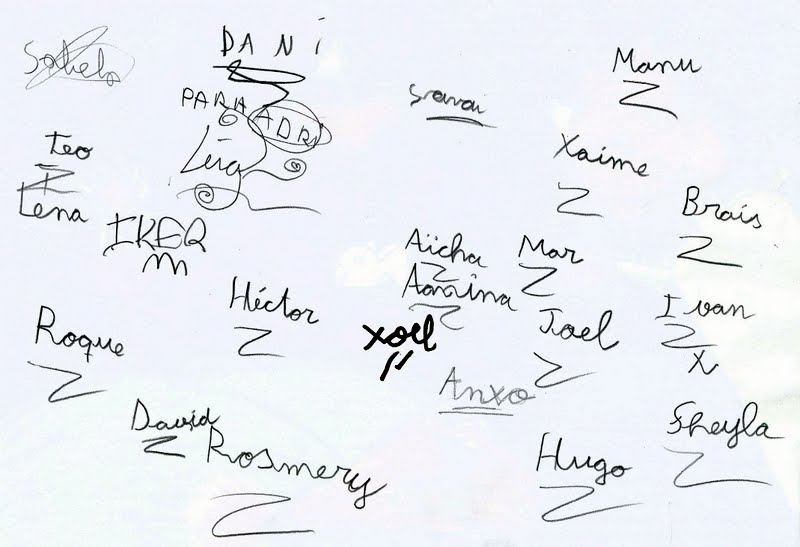 Sabela
DANI
PARA ADRI
Manu
Teo
Leia
Xaime
Lena
Brais
IKER
Aïcha
Mar
Héctor
Aamina
Ivan
X
Roque
xoel
Joel
Anxo
David
Rosmery
Hugo
Sheyla